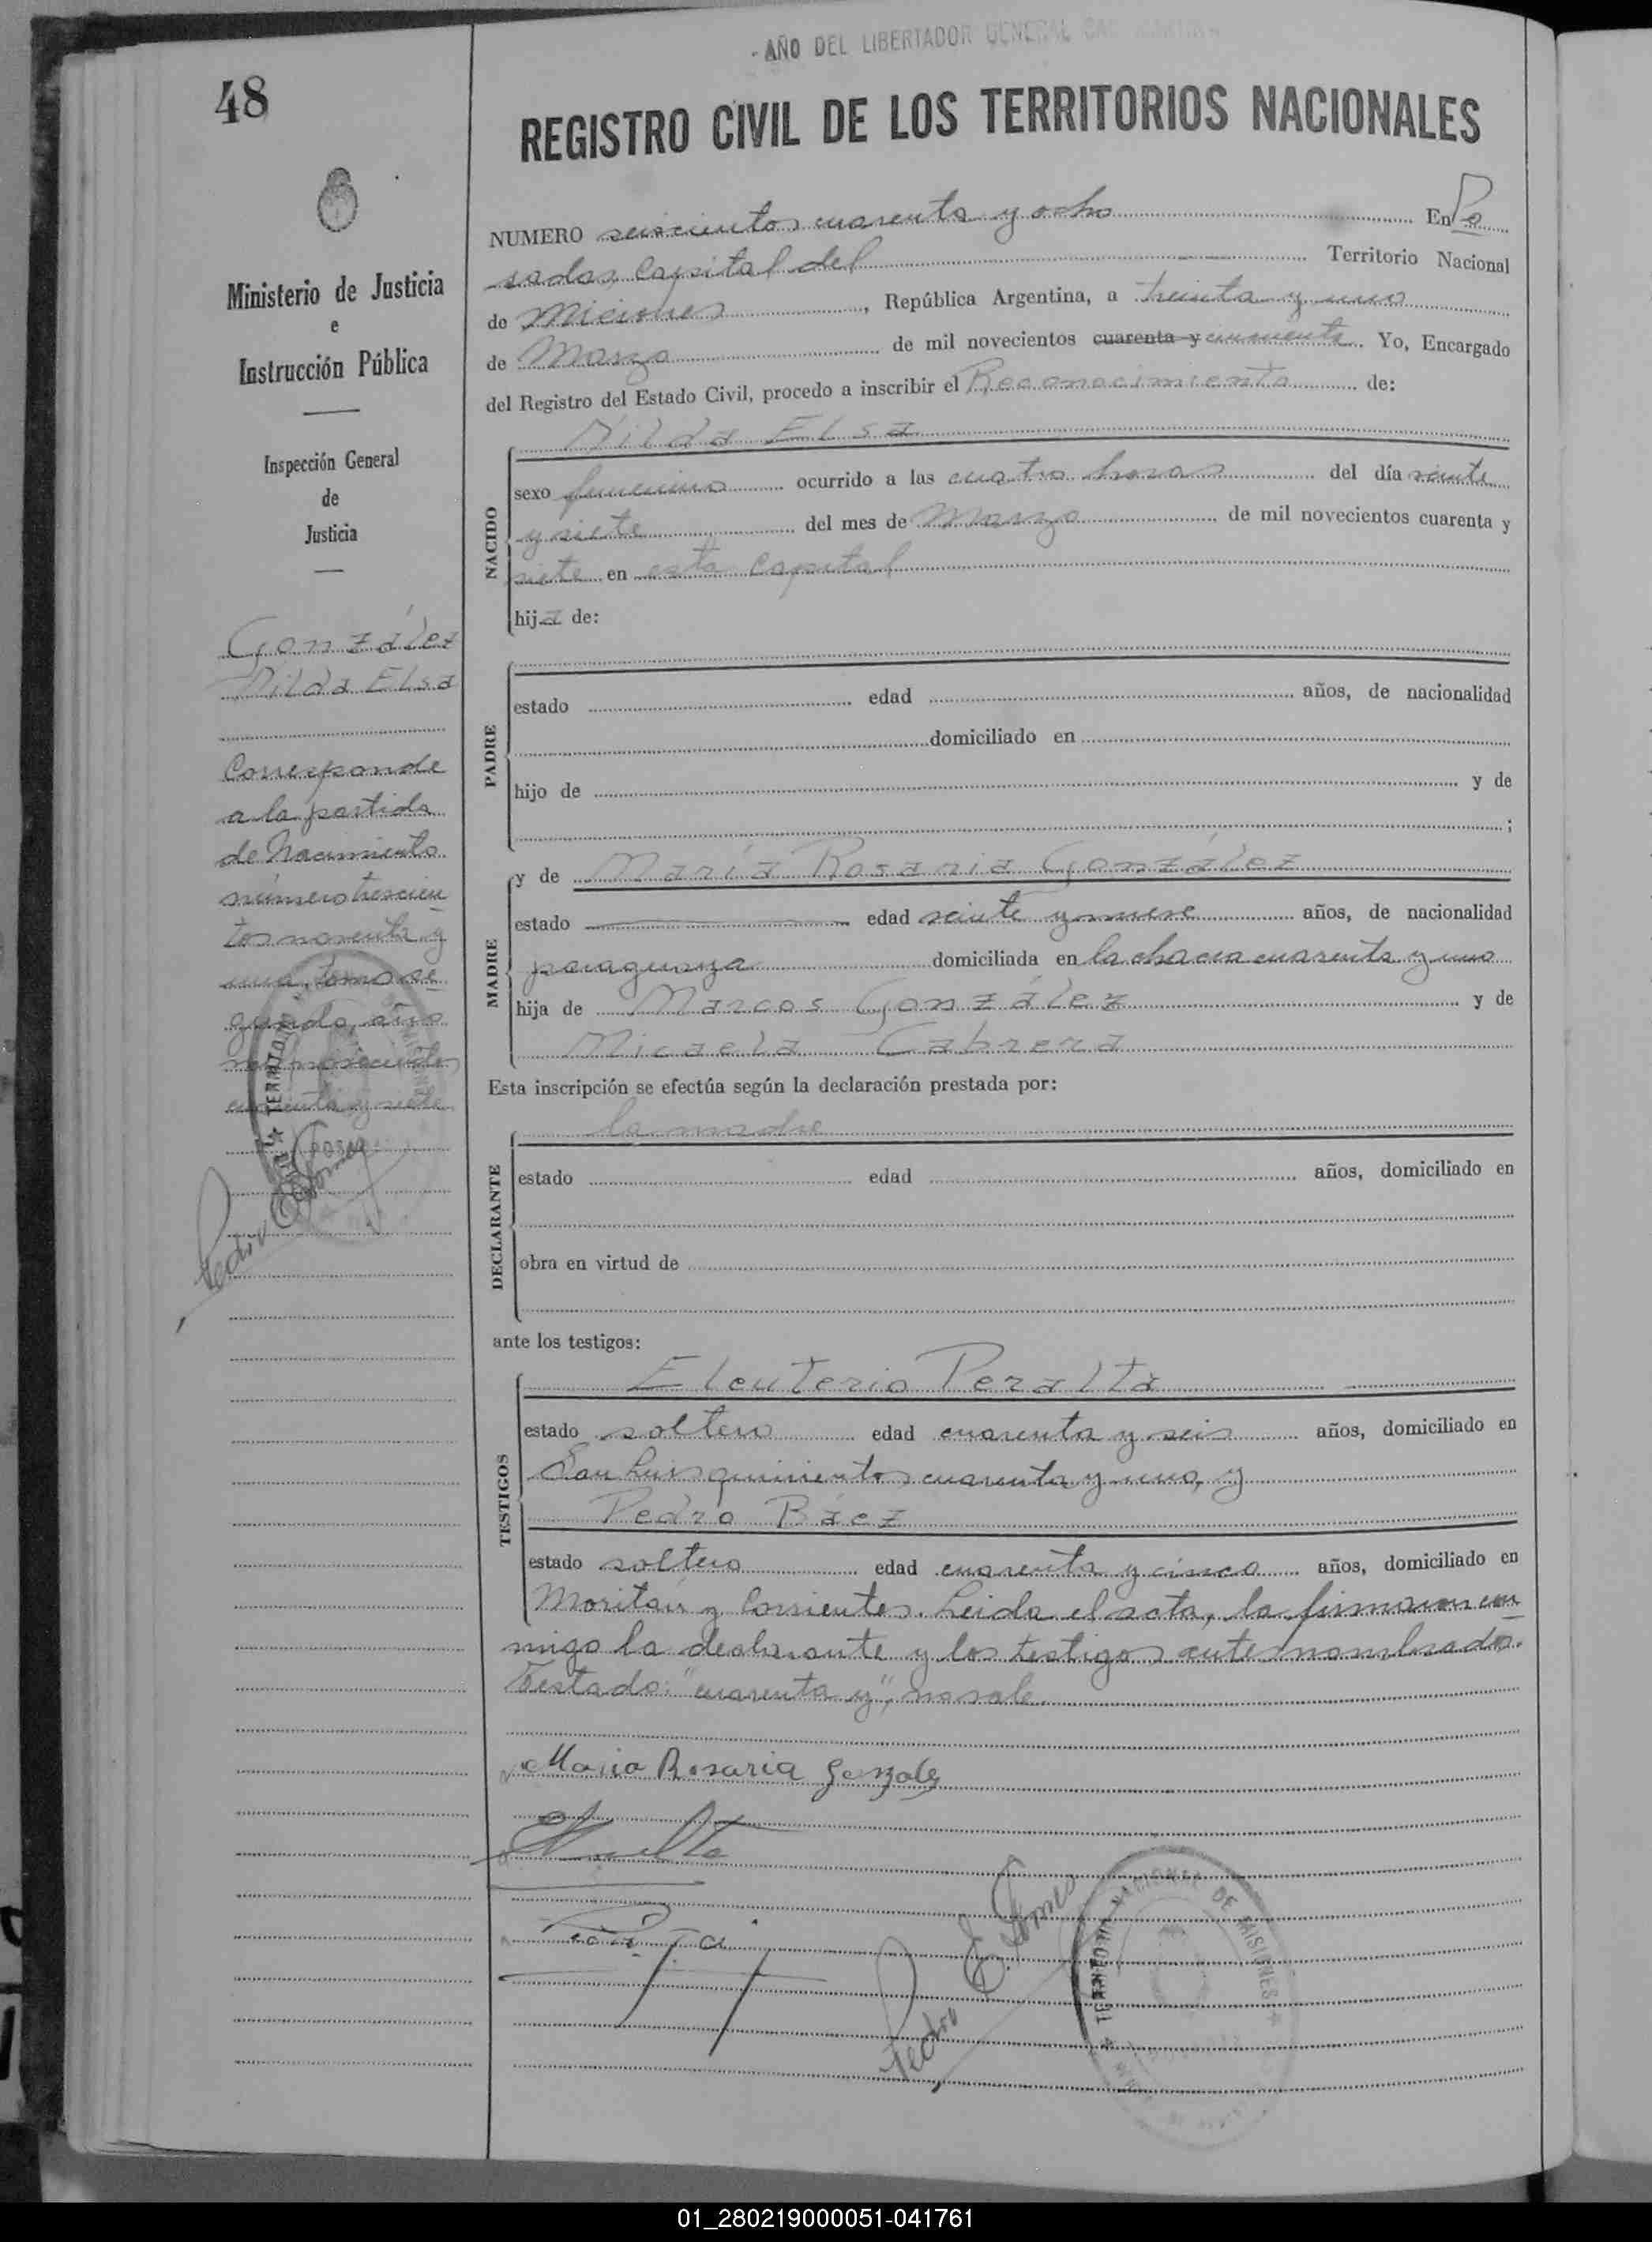 - AÑO DEL LIBERTADOR GENERAL SAN MARTIN -
48
REGISTRO CIVIL DE LOS TERRITORIOS NACIONALES
NUMERO seiscientos cuarenta y ocho En Po
sadas, Capital del Territorio Nacional
de Miciones, República Argentina, a treinta y uno
de Marzo de mil novecientos cuarenta y cincuenta. Yo, Encargado
del Registro del Estado Civil, procedo a inscribir el Reconocimiento de:
Nilda Elsa
NACIDO
sexo femenino ocurrido a las cuatro horas del día veinte
y siete del mes de Marzo de mil novecientos cuarenta y
siete en esta Capital
hija de:
PADRE
estado edad años, de nacionalidad
domiciliado en
hijo de y de
;
MADRE
y de María Rosaria González
estado edad veinte y nueve años, de nacionalidad
paraguaya domiciliada en la chacra cuarenta y uno
hija de Marcos González y de
Micaela Cabrera
Esta inscripción se efectúa según la declaración prestada por:
DECLARANTE
la madre
estado edad años, domiciliado en
obra en virtud de
ante los testigos:
TESTIGOS
Eleuterio Peralta
estado soltero edad cuarenta y seis años, domiciliado en
San Luis quinientos cuarenta y uno, y
Pedro Báez
estado soltero edad cuarenta y cinco años, domiciliado en
Moritán y Corrientes. Leida el acta, la firmaron con
migo la declarante y los testigos ante nombrados.
Testado: "cuarenta y", no vale.
Maria Rosaria Gonzalez
Pedro E. Gomez
TERRITORIO NACIONAL DE MISIONES
Ministerio de Justicia
e
Instrucción Pública
Inspección General
de
Justicia
González
Nilda Elsa
Corresponde
a la partida
de Nacimiento
número trescien
tos noventa y
una, tomo se
gundo, año
mil novecientos
cuarenta y siete
Pedro E. Gomez
01_280219000051-041761